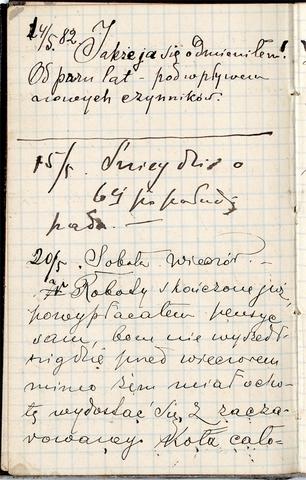 14/5. 82. Jakże ja się odmieniłem!
Od paru lat – pod wpływem
nowych czynników.
15/5. Śnieg dziś o
6ej po południu
pada. —
20/5. Sobota wieczór. –
Roboty skończone już,
powypłacałem pensye
sam, bom nie wyszedł
nigdzie przed wieczorem
mimo żem miał ocho-
tę wydostać się z zacza-
rowanego koła cało-